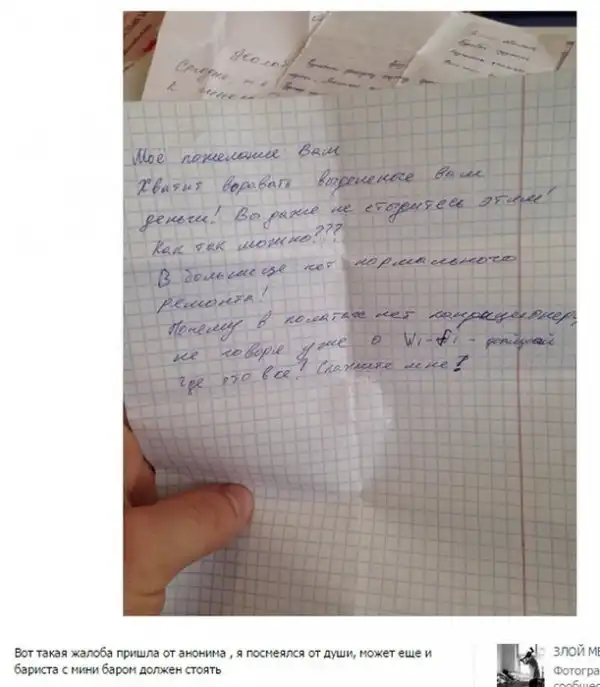 Моё пожелание Вам
Хватит воровать выделеные Вам
деньги! Вы даже не стыдитесь этим!
Как так можно???
В больнице нет нормального
ремонта!
Почему в полатах нет
не говоря уже о Wi-Fi -
где это все? Скажите мне?
Вот такая жалоба пришла от анонима , я посмеялся от души, может еще и
бариста с мини баром должен стоять
ЗЛОЙ МЕ
Фотогра
сообщес